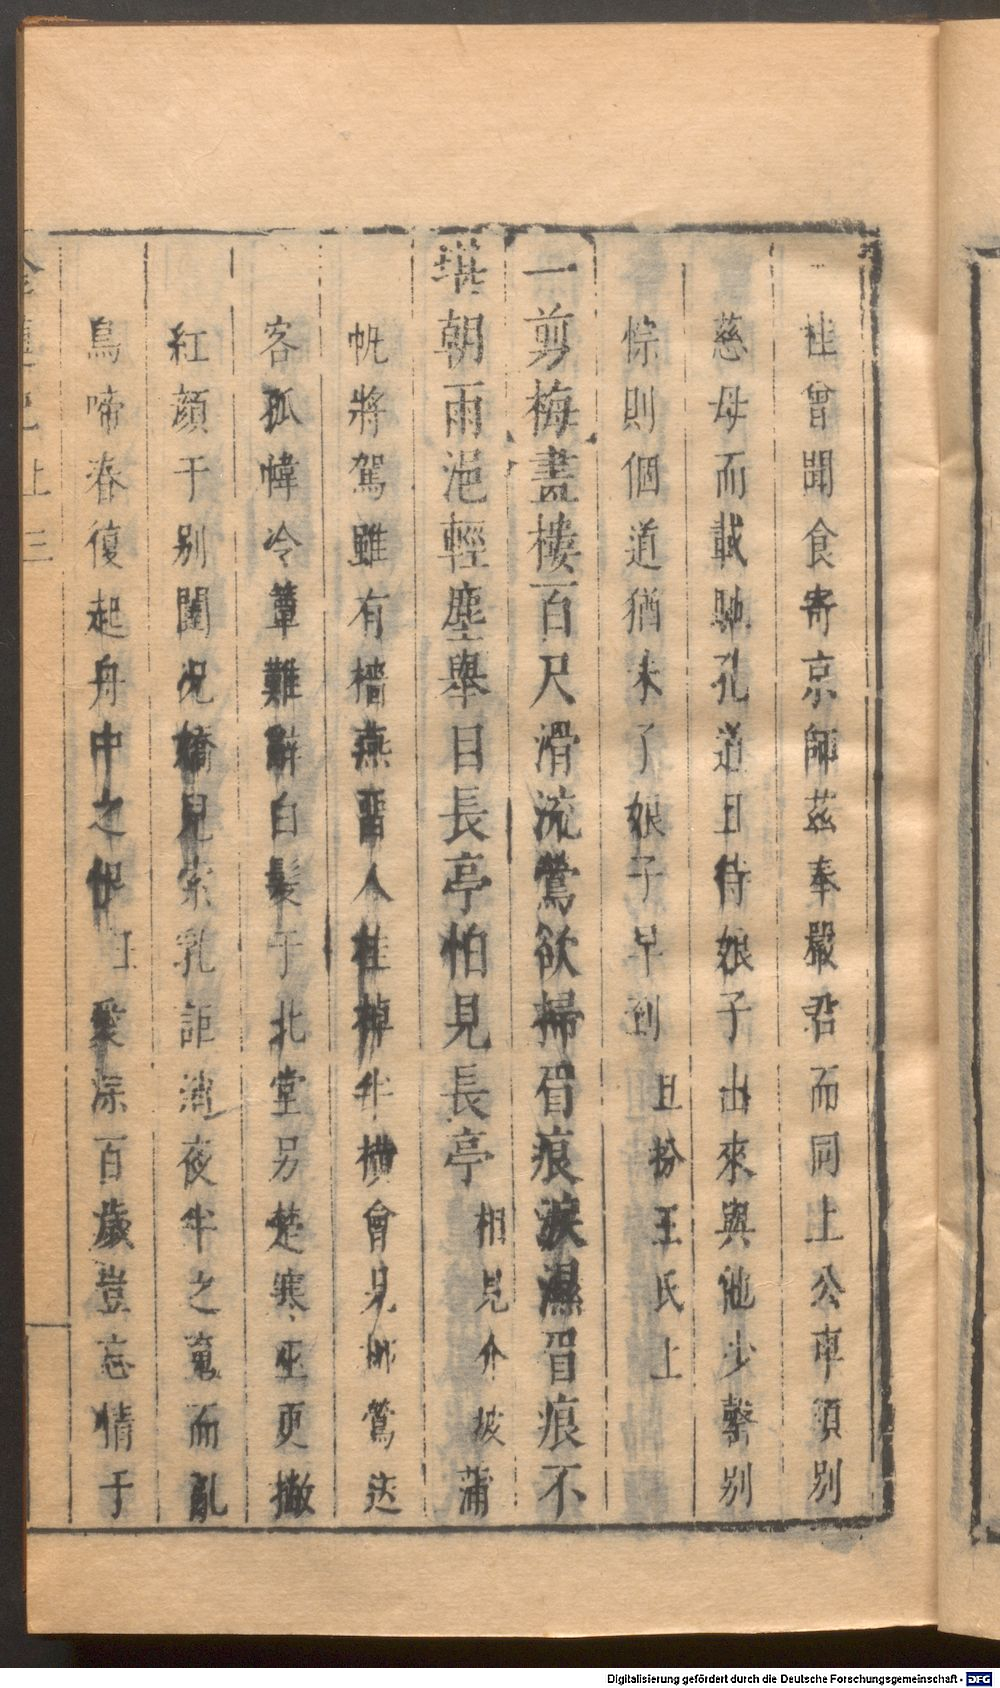 往曾聞食寄京師茲奉嚴君而同上公車須別
慈母而載馳孔道且待娘子出來與他少罄別
悰則個道猶未了娘子早到 旦扮王氏上
一剪梅畫樓百尺滑流鶯欲掃眉痕淚濕眉痕不
堪朝雨浥輕塵舉目長亭怕見長亭 相見介披蒲
帆將駕雖有檣燕畱人桂棹斗橫會見柳鶯送
客孤幃冷簟難辭白髮于北堂另楚寒巫更撇
紅顏于別闔况嬌兒索乳詎消夜半之 而亂
烏啼春復起舟中之 生衆深百歲豈忘情于
上三
Digitalisierung gefördert durch die Deutsche Forschungsgemeinschaft - DFG